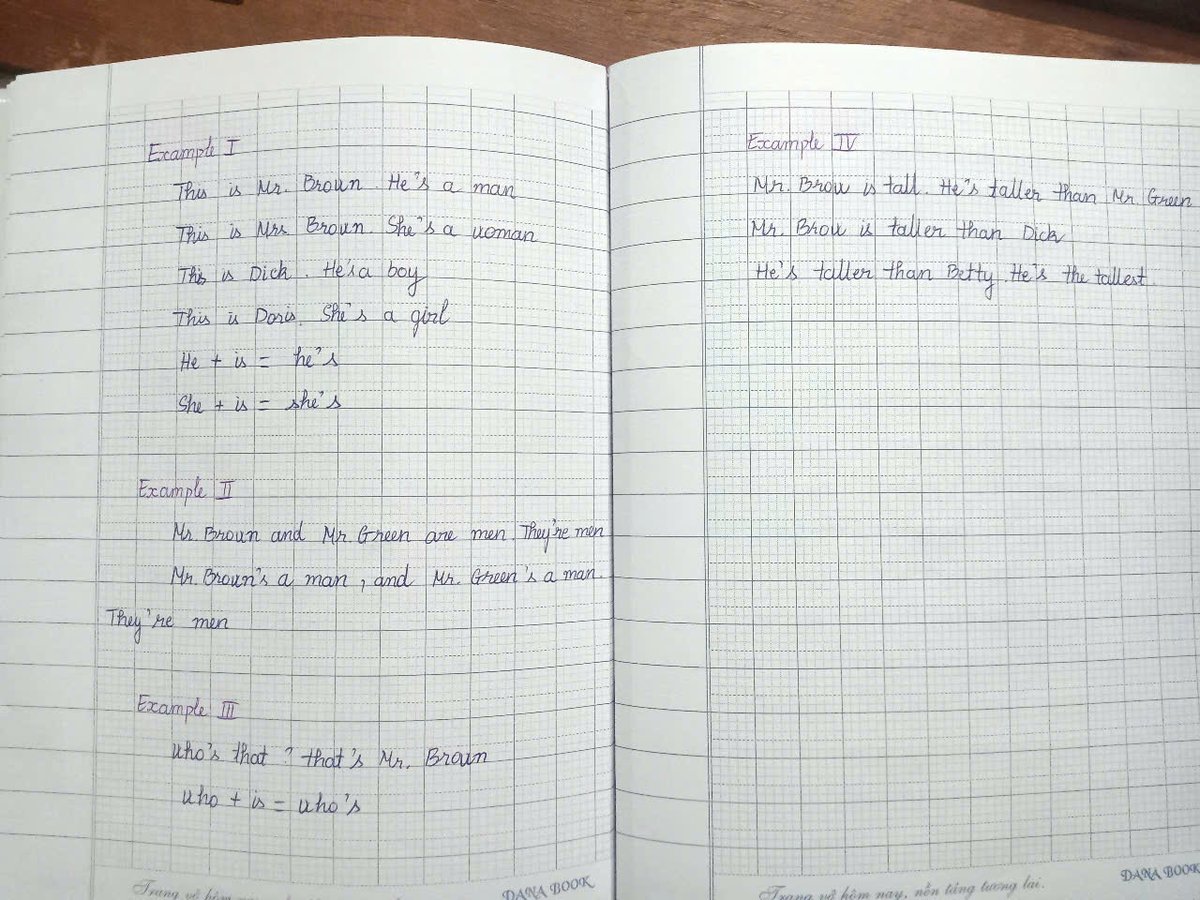 Example I
This is Mr. Brown. He's a man
This is Mrs Brown. She's a woman
This is Dick. He's a boy
This is Doris. She's a girl
He + is = he's
She + is = she's
Example II
Mr. Brown and Mr. Green are men. They're men
Mr. Brown's a man, and Mr. Green's a man.
They're men
Example III
Who's that? that's Mr. Brown
Who + is = Who's
Trang vở hôm
DANA BOOK
Example IV
Mr. Brow is tall. He's taller than Mr. Green
Mr. Brow is taller than Dick
He's taller than Betty. He's the tallest.
Trang vở hôm nay, nền tảng tương lai.
DANA BOOK